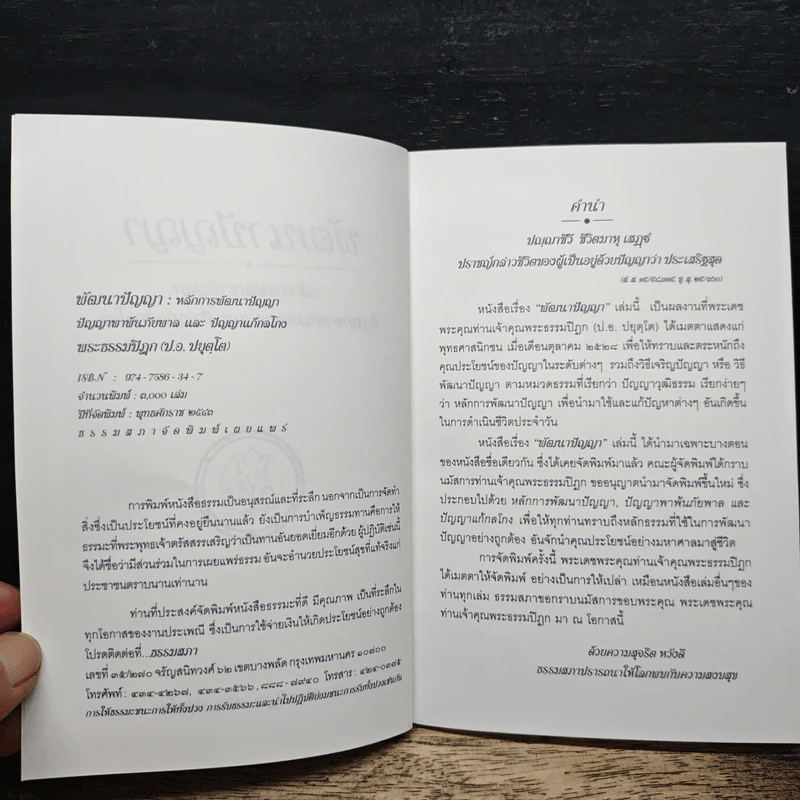 พัฒนาปัญญา : หลักการพัฒนาปัญญา
ปัญญาพาพ้นภัยพาล และ ปัญญาแก้กลโกง
พระธรรมปิฎก (ป.อ. ปยุตฺโต)
ISB.N : 974-7586-34-7
จำนวนพิมพ์ : ๓,๐๐๐ เล่ม
ปีที่จัดพิมพ์ : พุทธศักราช ๒๕๔๓
ธรรมสภาจัดพิมพ์เผยแพร่
การพิมพ์หนังสือธรรมเป็นอนุสรณ์และที่ระลึก นอกจากเป็นการจัดทำ
สิ่งซึ่งเป็นประโยชน์ที่คงอยู่ยืนนานแล้ว ยังเป็นการบำเพ็ญธรรมทานคือการให้
ธรรมะที่พระพุทธเจ้าตรัสสรรเสริญว่าเป็นทานอันยอดเยี่ยมอีกด้วย ผู้ปฏิบัติเช่นนี้
จึงได้ชื่อว่ามีส่วนร่วมในการเผยแพร่ธรรม อันจะอำนวยประโยชน์สุขที่แท้จริงแก่
ประชาชนตราบนานเท่านาน
ท่านที่ประสงค์จัดพิมพ์หนังสือธรรมะที่ดี มีคุณภาพ เป็นที่ระลึกใน
ทุกโอกาสของงานประเพณี ซึ่งเป็นการใช้จ่ายเงินให้เกิดประโยชน์อย่างถูกต้อง
โปรดติดต่อที่...ธรรมสภา
เลขที่ ๓๕/๒๗๐ จรัญสนิทวงศ์ ๖๒ เขตบางพลัด กรุงเทพมหานคร ๑๐๗๐๐
โทรศัพท์ : ๔๓๔-๔๒๖๗, ๔๓๔-๓๕๖๖, ๘๘๘-๗๙๔๐ โทรสาร : ๔๒๔-๐๓๗๕
การให้ธรรมะชนะการให้ทั้งปวง การรับธรรมะและนำไปปฏิบัติย่อมชนะการรับทั้งปวงเช่นกัน
คำนำ
ปญฺญาชีวึ ชีวิตมาหุ เสฏฺฐํ
ปราชญ์กล่าวชีวิตของผู้เป็นอยู่ด้วยปัญญาว่า ประเสริฐสุด
หนังสือเรื่อง "พัฒนาปัญญา" เล่มนี้ เป็นผลงานที่พระเดช
พระคุณท่านเจ้าคุณพระธรรมปิฎก (ป.อ. ปยุตฺโต) ได้เมตตาแสดงแก่
พุทธศาสนิกชน เมื่อเดือนตุลาคม ๒๕๒๘ เพื่อให้ทราบและตระหนักถึง
คุณประโยชน์ของปัญญาในระดับต่างๆ รวมถึงวิธีเจริญปัญญา หรือ วิธี
พัฒนาปัญญา ตามหมวดธรรมที่เรียกว่า ปัญญาวุฒิธรรม เรียกง่ายๆ
ว่า หลักการพัฒนาปัญญา เพื่อนำมาใช้และแก้ปัญหาต่างๆ อันเกิดขึ้น
ในการดำเนินชีวิตประจำวัน
หนังสือเรื่อง "พัฒนาปัญญา" เล่มนี้ ได้นำมาเฉพาะบางตอน
ของหนังสือชื่อเดียวกัน ซึ่งได้เคยจัดพิมพ์มาแล้ว คณะผู้จัดพิมพ์ได้กราบ
นมัสการท่านเจ้าคุณพระธรรมปิฎก ขออนุญาตนำมาจัดพิมพ์ขึ้นใหม่ ซึ่ง
ประกอบไปด้วย หลักการพัฒนาปัญญา, ปัญญาพาพ้นภัยพาล และ
ปัญญาแก้กลโกง เพื่อให้ทุกท่านทราบถึงหลักธรรมที่ใช้ในการพัฒนา
ปัญญาอย่างถูกต้อง อันจักนำคุณประโยชน์อย่างมหาศาลมาสู่ชีวิต
การจัดพิมพ์ครั้งนี้ พระเดชพระคุณท่านเจ้าคุณพระธรรมปิฎก
ได้เมตตาให้จัดพิมพ์ อย่างเป็นการให้เปล่า เหมือนหนังสือเล่มอื่นๆของ
ท่านทุกเล่ม ธรรมสภาขอกราบนมัสการขอบพระคุณ พระเดชพระคุณ
ท่านเจ้าคุณพระธรรมปิฎก มา ณ โอกาสนี้
ด้วยความสุจริต หวังดี
ธรรมสภาปรารถนาให้โลกพบกับความสงบสุข